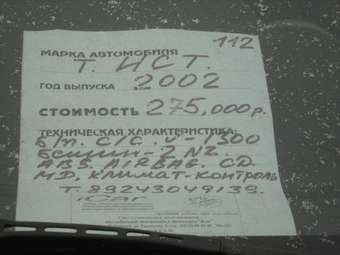 112
МАРКА АВТОМОБИЛЯ
Т. ИСТ.
ГОД ВЫПУСКА 2002
СТОИМОСТЬ 275,000 р.
ТЕХНИЧЕСКАЯ ХАРАКТЕРИСТИКА:
Б/п. С/С. V-1300
БЕНЗИН-2NZ.
ABS. AIRBAG. CD.
MD. КЛИМАТ-КОНТРОЛЬ
Т. 89243049139.